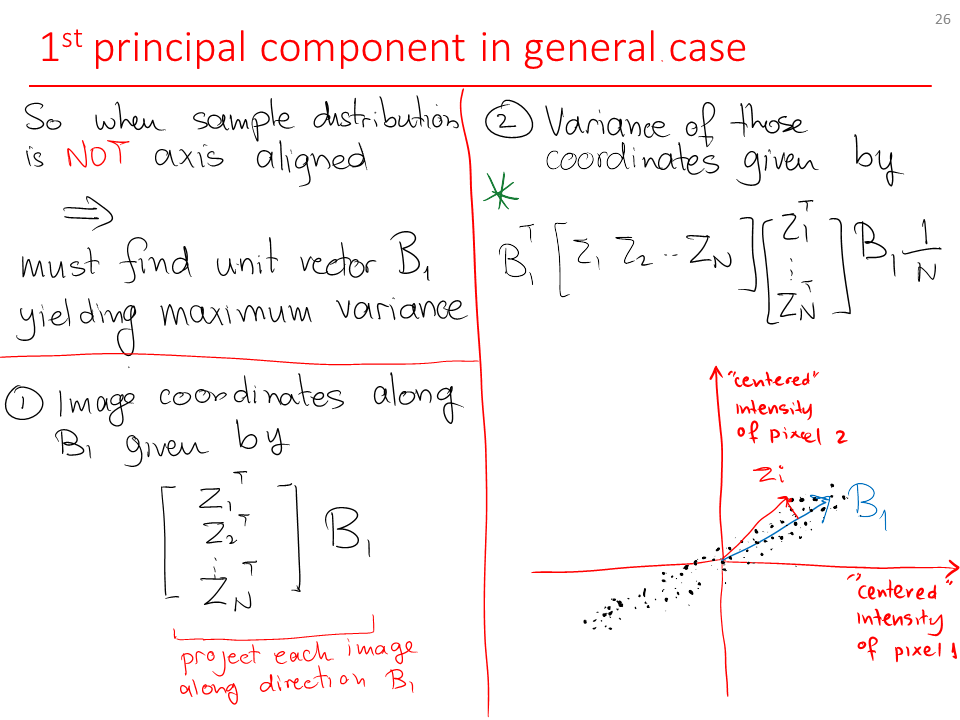 26
1st principal component in general case
So when sample distribution
is NOT axis aligned
⇒
must find unit vector B₁
yielding maximum variance
① Image coordinates along
B₁ given by
[ Z₁ᵀ
Z₂ᵀ
⋮
Z_Nᵀ ] B₁
project each image
along direction B₁
② Variance of those
coordinates given by
*
B₁ᵀ [ Z₁ Z₂ ·· Z_N ] [ Z₁ᵀ ⋮ Z_Nᵀ ] B₁ 1/N
"centered"
intensity
of pixel 2
Zi
B₁
"centered"
intensity
of pixel 1